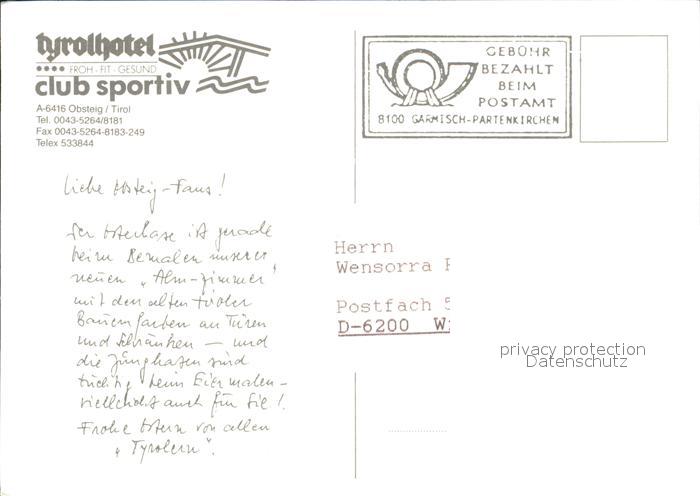 tyrolhotel
★★★★ FROH - FIT - GESUND
club sportiv
A-6416 Obsteig / Tirol
Tel. 0043-5264/8181
Fax 0043-5264-8183-249
Telex 533844
GEBÜHR
BEZAHLT
BEIM
POSTAMT
8100 GARMISCH-PARTENKIRCHEN
Liebe Obsteig-Fans!
Der Osterhase ist gerade
beim Bemalen unserer
neuen „Alm-Zimmer"
mit den alten Tiroler
Bauernfarben an Türen
und Schränken – und
die Junghasen sind
tüchtig beim Eiermalen –
vielleicht auch für Sie!
Frohe Ostern von allen
„Tyrolern".
Herrn
Wensorra
Postfach
D-6200 W
privacy protection
Datenschutz